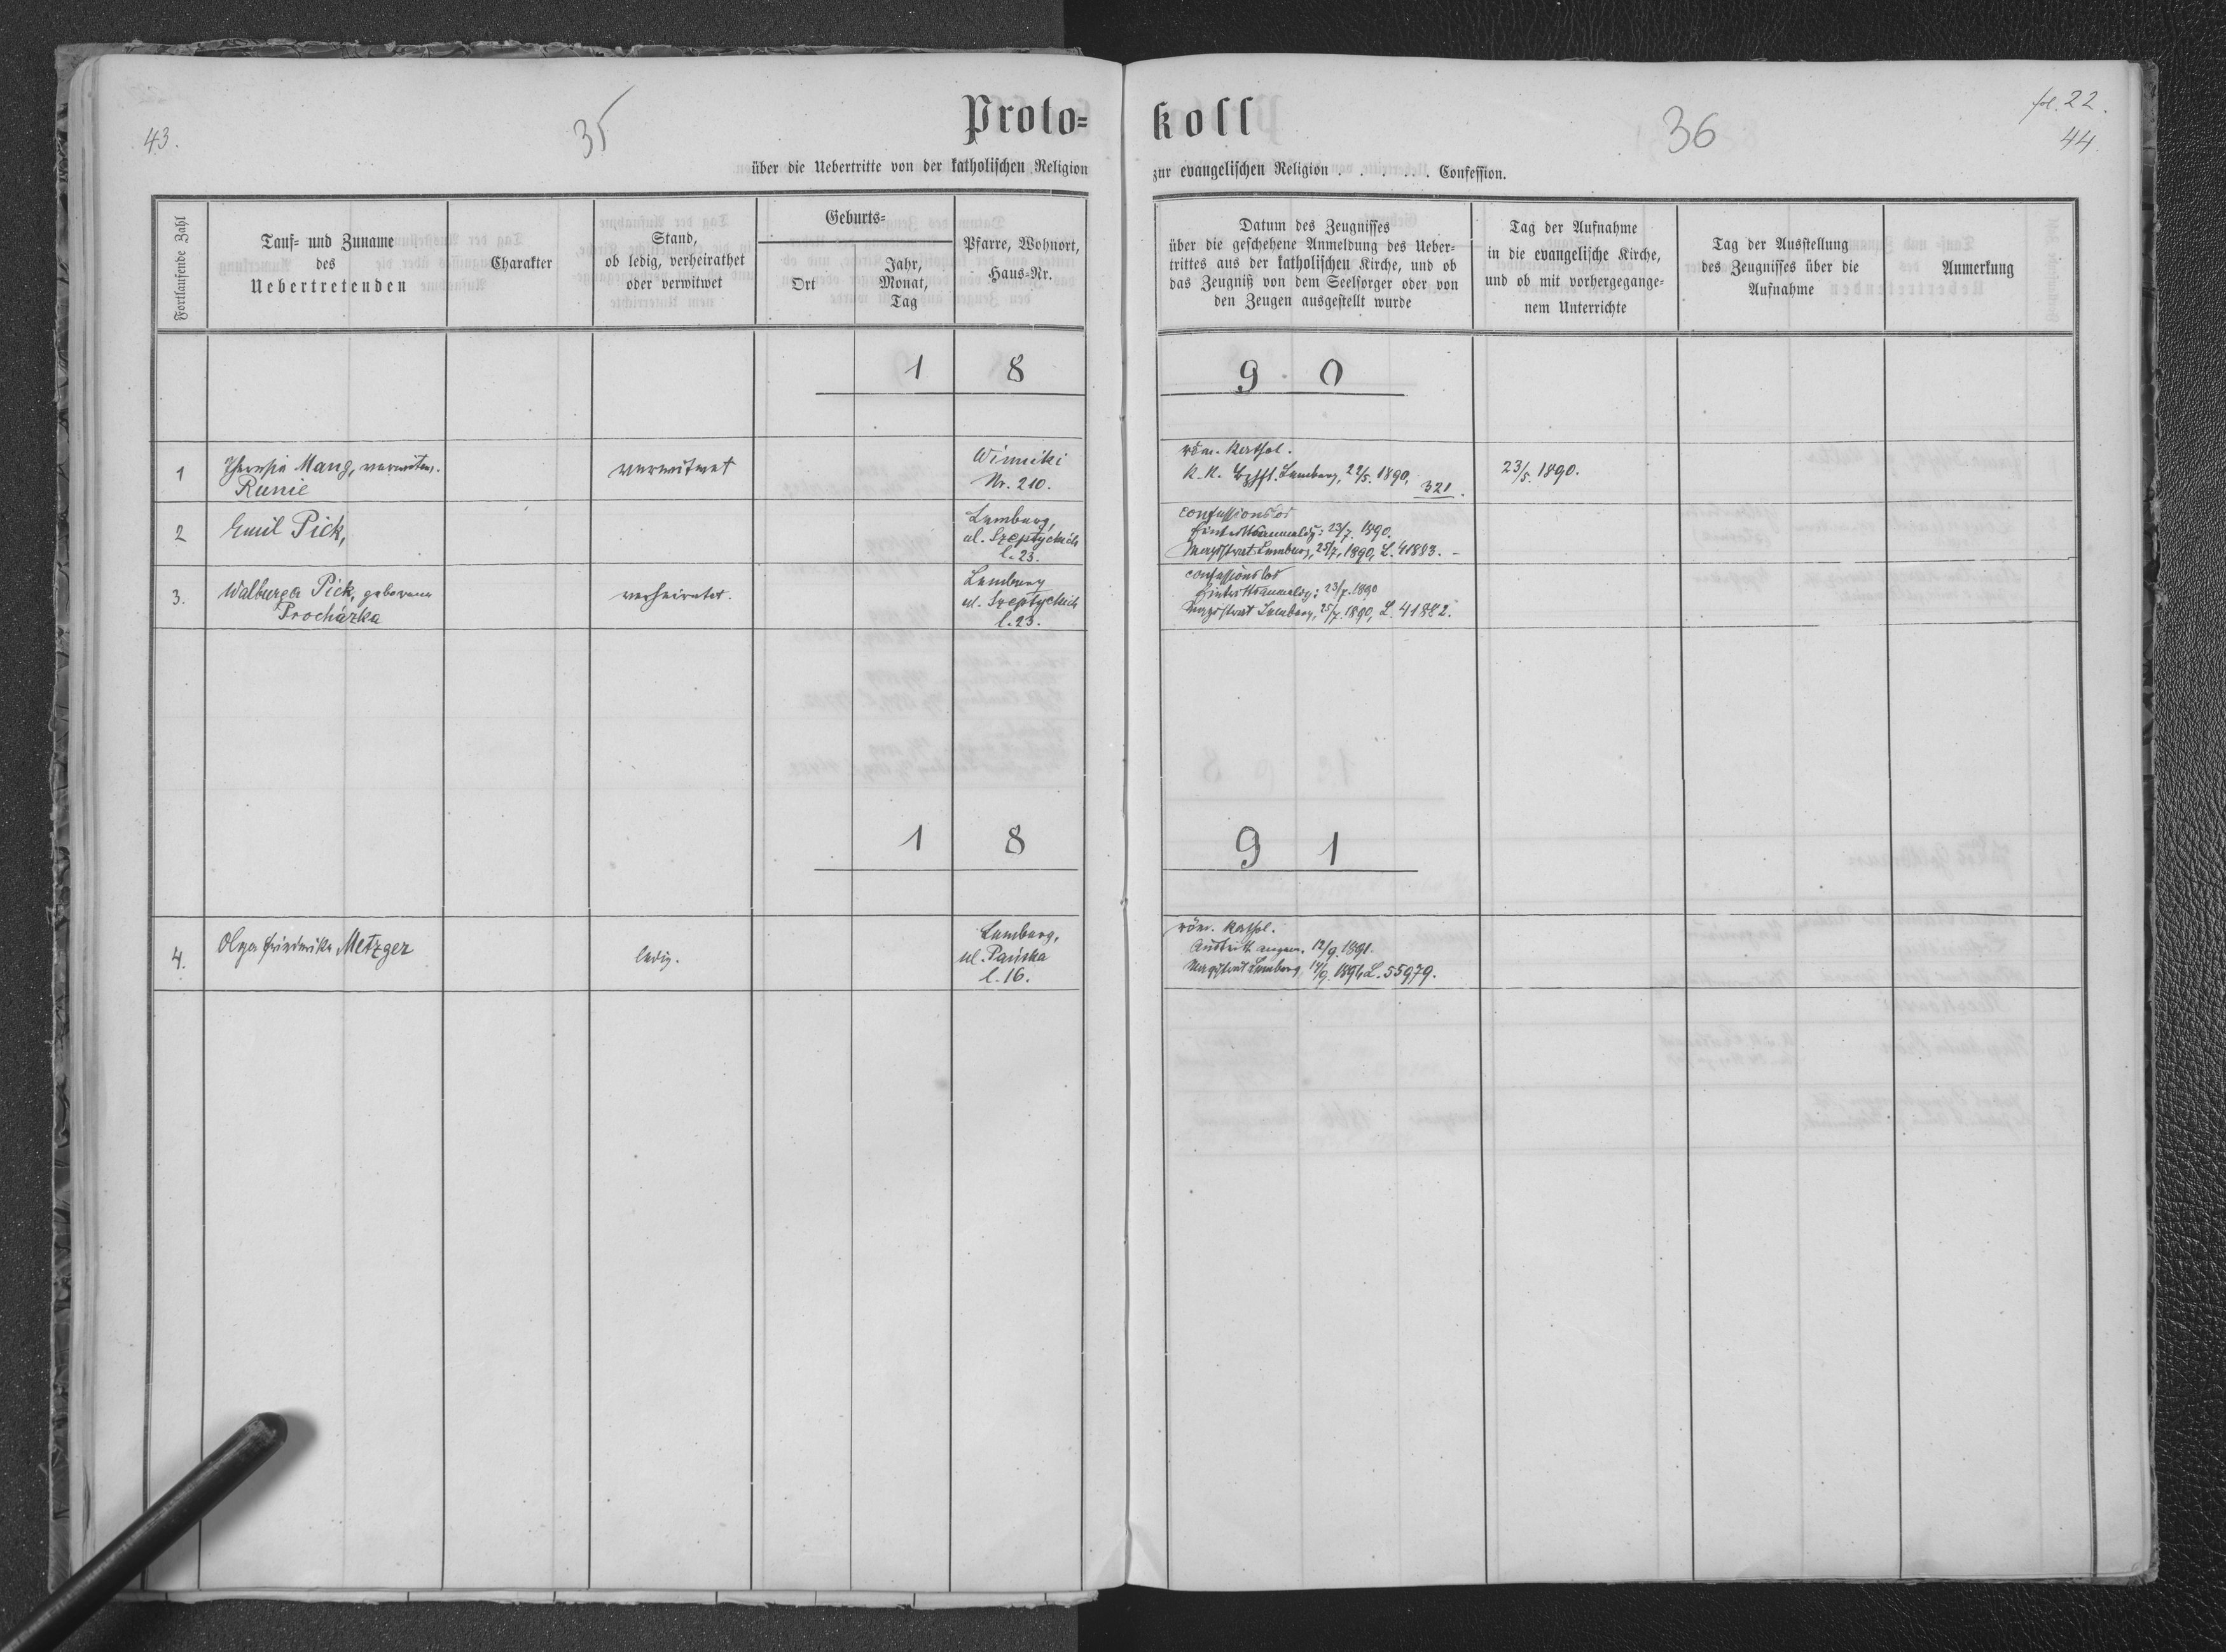 43.
35
Proto-
koll
36
fol. 22.
44.
über die Uebertritte von der katholischen Religion
zur evangelischen Religion . . . . . . Confession.
Fortlaufende Zahl
Tauf- und Zuname
des
Uebertretenden
Charakter
Stand,
ob ledig, verheirathet
oder verwitwet
Geburts-
Ort
Jahr,
Monat,
Tag
Pfarre, Wohnort,
Haus-Nr.
Datum des Zeugnisses
über die geschehene Anmeldung des Ueber-
trittes aus der katholischen Kirche, und ob
das Zeugniß von dem Seelsorger oder von
den Zeugen ausgestellt wurde
Tag der Aufnahme
in die evangelische Kirche,
und ob mit vorhergegange-
nem Unterrichte
Tag der Ausstellung
des Zeugnisses über die
Aufnahme
Anmerkung
1 8 9 0
1
Theresia Mang, verwitw.
Runie
verwitwet
Winniki
Nr. 210.
röm. Kathol.
K. K. Lemberg, 22/5. 1890,
321.
23/5. 1890.
2
Emil Pick,
Lemberg,
ul. Szeptyckich
l. 23.
confessionslos
23/7. 1890.
Magistrat Lemberg, 25/7. 1890, L. 41883. -
3.
Walburga Pick, geborene
Procházka
verheiratet.
Lemberg
ul. Szeptyckich
l. 23.
confessionslos
23/7. 1890
Magistrat Lemberg, 25/7. 1890, L. 41882.
1 8 9 1
4.
Olga Friederike Metzger
ledig.
Lemberg,
ul. Pańska
l. 16.
röm. Kathol.
Austritt angem. 12/9. 1891.
Magistrat Lemberg, 14/9. 1891, L. 55979.